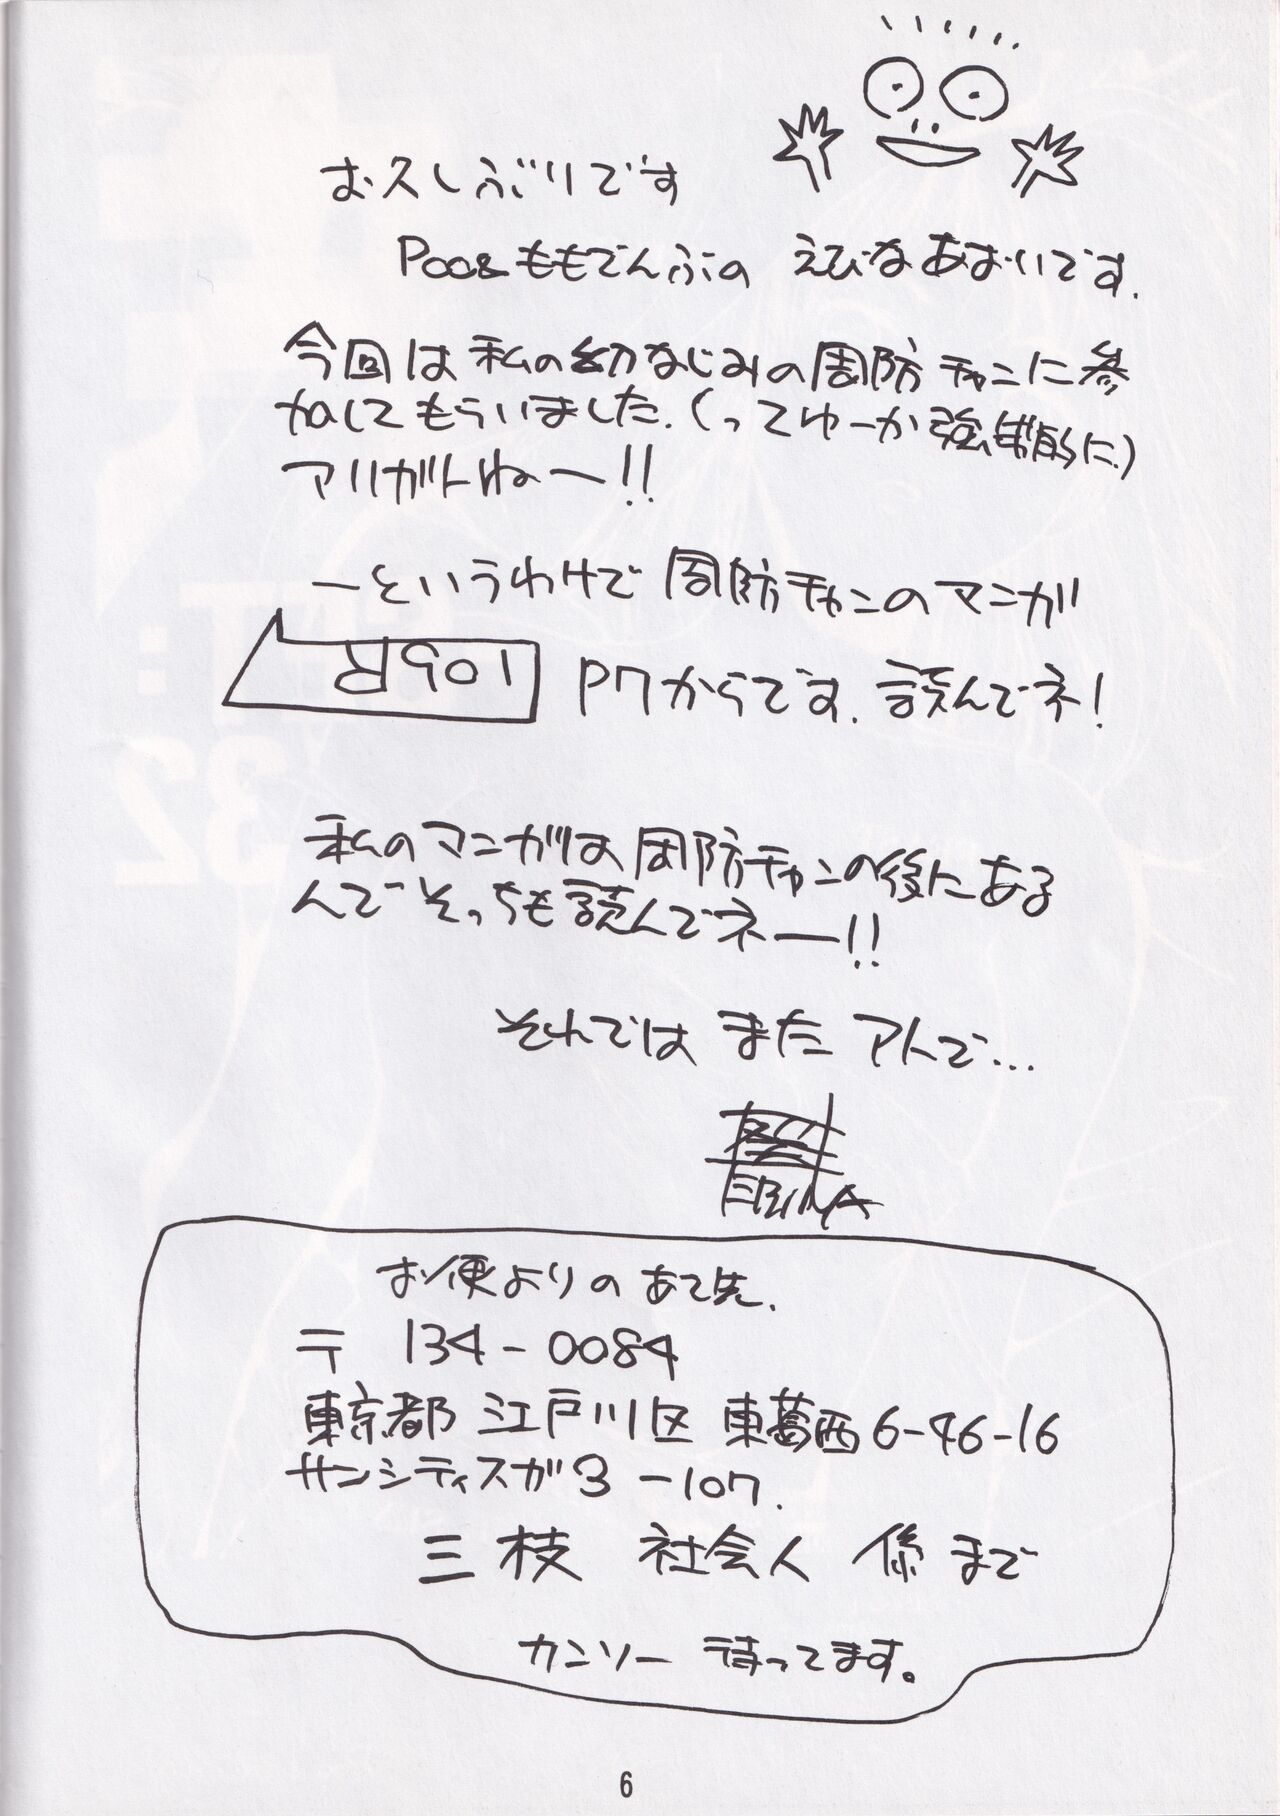 お久しぶりです
Poo&ももでんぶの えびなあおいです.
今回は私の幼なじみの周防チャンに参
加してもらいました.(ってゆーか強制的に.)
アリガトねー!!
ーというわけで周防チャンのマンガ
P7からです.読んでネ!
私のマンガは周防チャンの後にある
んでそっちも読んでネー!!
それでは また アトで…
EBINA
お便よりのあて先.
〒 134-0084
東京都 江戸川区 東葛西6-46-16
サンシティスガ3 -107.
三枝 社会人 係まで
カンソー 待ってます。
6